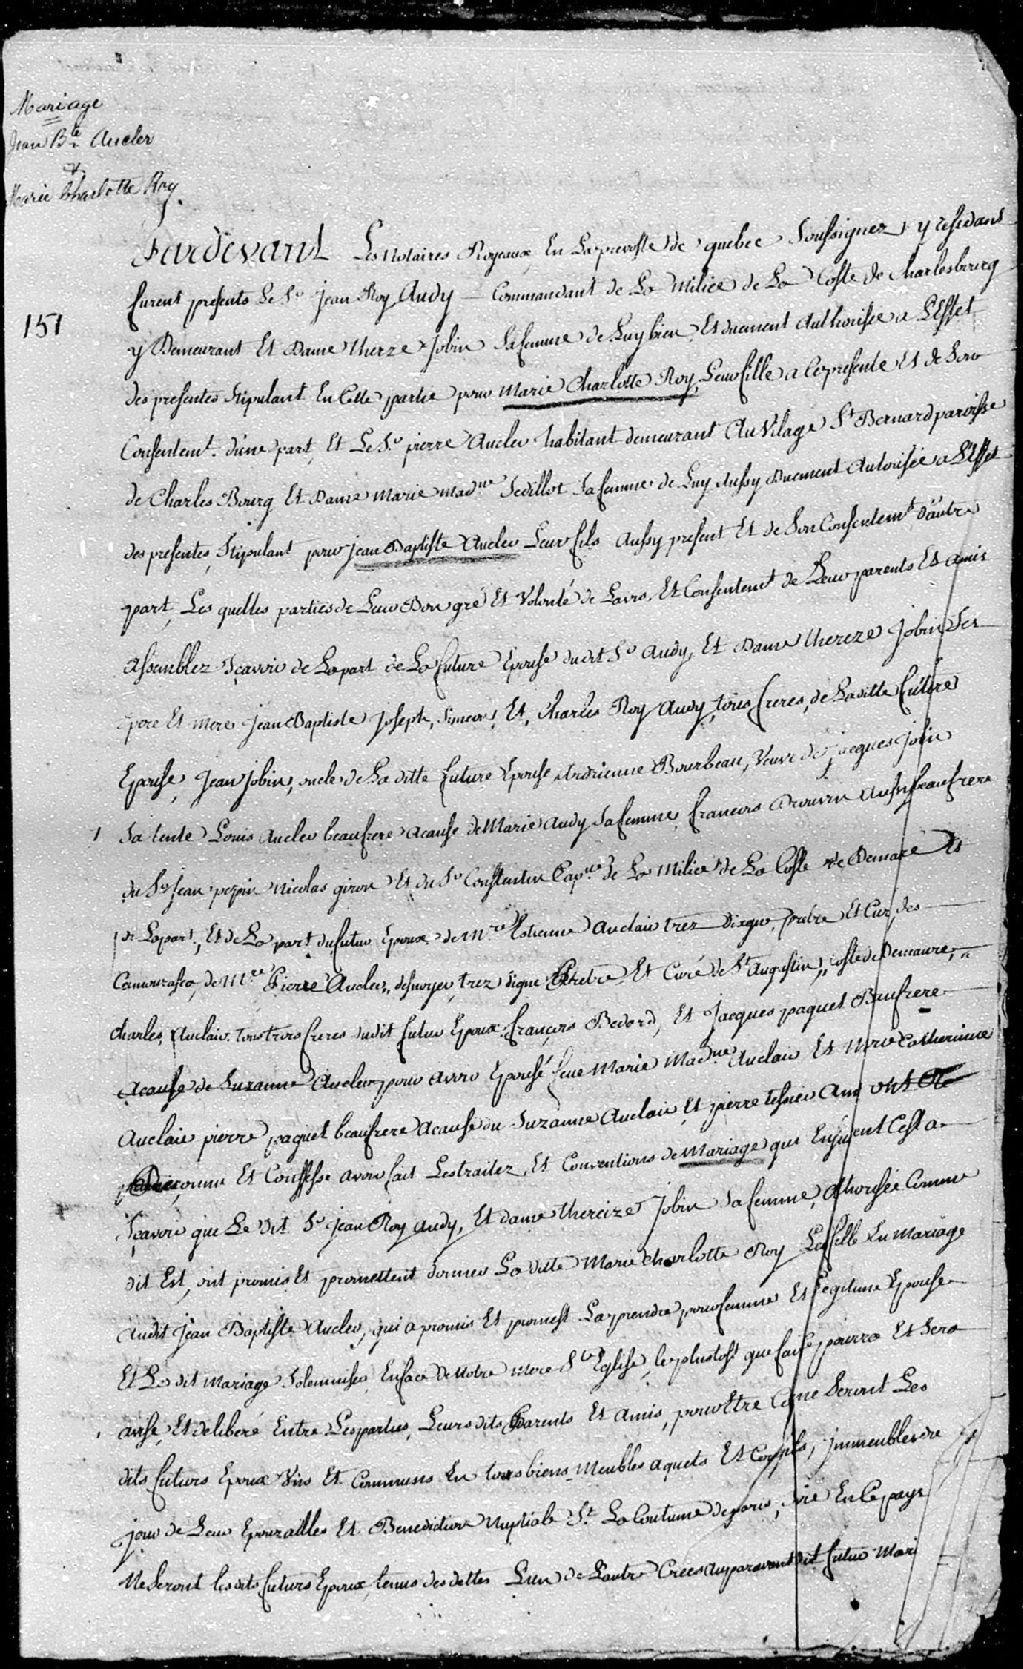 Mariage
Jean Bte Aucler
&
Marie Charlotte Roy
Pardevant Les Notaires Royaux En La prevosté de quebec Soussignez y residans
furent presents Le Sr Jean Roy Audy Commandant de La Milice de La Coste de Charlesbourg
151
y Demeurant Et Dame therze Jobin Sa femme de Luy bien Et duement Authorisée a L'Effet
des presentes Stipulant En Cette partie pour Marie Charlotte Roy, Leur fille a Ce presente Et de Son
Consentemt. d'une part, Et Le Sr pierre Aucler habitant demeurant Au Vilage St Bernard paroisse
de Charles Bourg Et Dame Marie Madne Sedillot Sa femme de Luy Aussy Duement Autorisée a L'Effet
des presentes, Stipulant pour Jean Baptiste Aucler Leur fils Aussy present Et de Son Consentemt d'autre
part, Les quelles parties de Leur Bon gré Et Volonté de Lavis Et Consentemt de Leur parents Et amis
assemblez Sçavoir de La part de La future Epouse dudit Sr Audy, Et Dame thereze Jobin Ses
pere Et mere Jean Baptiste Joseph, Simeon, Et, Charles Roy Audy, tous freres, de La ditte future
Epouse, Jean Jobin, oncle de La ditte future Epouse Adrienne Bourbeau, Veuve de Jacques Jobin
Sa tente Louis Aucler beaufrere acause de Marie Audy Sa femme, francois Drouin Aussy beaufrere
du Sr Jean pepin Nicolas giron Et du Sr Constentin Capne de La Milice de La Coste de Demaure Et
de La part, Et de La part du futur Epoux, de Mre Estienne Auclair tres Digne, prestre Et Curé des
Camouraska, de Mre Pierre Aucler, desnoyer, trez digne Prestre Et Curé de St Augustin, Coste de Demaure,
Charles, Auclair tous trois freres dudit futur Epoux, françois Bedard, Et Jacques paquet Beaufrere
Acause de Suzanne Aucler pour avoir Epousé feue Marie Madne Auclair Et Marie Catherinne
Auclair pierre paquet beaufrere Acause de Suzanne Auclair Et pierre tessier Amy ont Été
Reconnu Et Confesse avoir fait Les traitez Et Conventions de Mariage qui Ensuivent C'est a
Sçavoir que Le dit Sr Jean Roy Audy, Et dame thereize Jobin Sa femme, Athorisée Comme
dit Est, ont promis Et promettent donner La ditte Marie Charlotte Roy La fille En Mariage
audit Jean Baptiste Aucler, qui a promis Et promest La prendre pour femme Et Legitime Epouse
Et Le dit Mariage Solemnisé En face de Notre mere Ste Eglise, le plustost que faire pourra Et Sera
avisé, Et deliberé Entre Les parties, Leurs dits Parents Et Amis, pour Etre Come Seront Les
dits futurs Epoux Uns Et Communs En tous biens Meubles aquets Et Conquets, immeubles du
jour de Leur Epouzailles Et Benediction Nuptiale St La Coutume de paris, Suivie En Ce pays
Ne Seront lesdits futurs Epoux, tenus des dettes L'un de L'autre Créés auparavant dit futur Mari